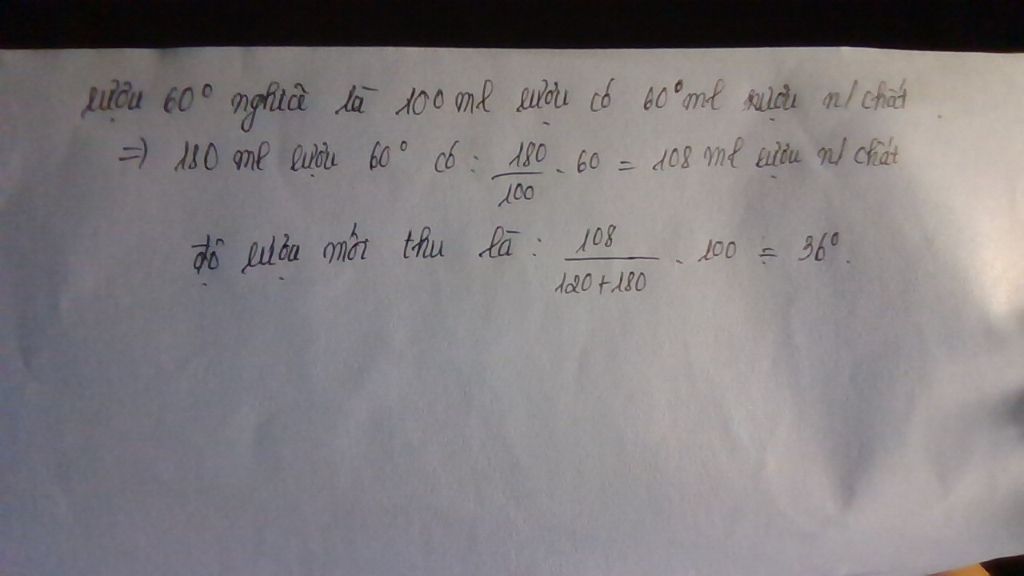 rượu 60° nghĩa là 100 ml rượu có 60° ml rượu n/chất
=> 180 ml rượu 60° có : 180/100 . 60 = 108 ml rượu n/chất
độ rượu mới thu là : 108/(120+180) . 100 = 36°.